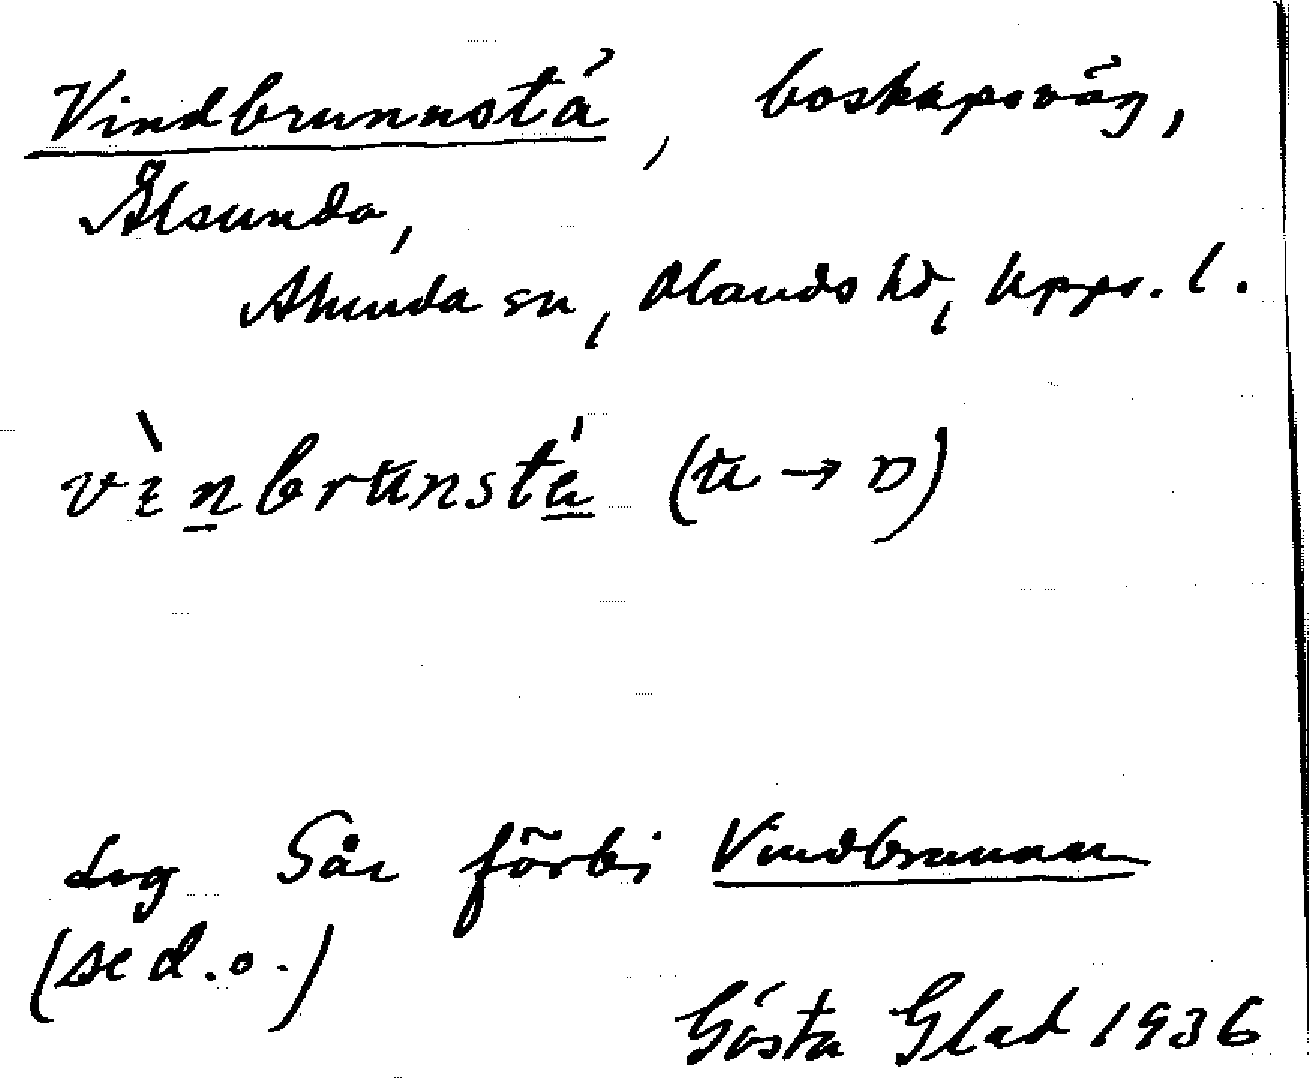 Vindbrunnstå, boskapsväg,
Ålsunda,
Alunda sn, Olands hd, Upps. l.
(u → )
Går förbi Vindbrunnen
(se d.o.)
Gösta Glad 1936